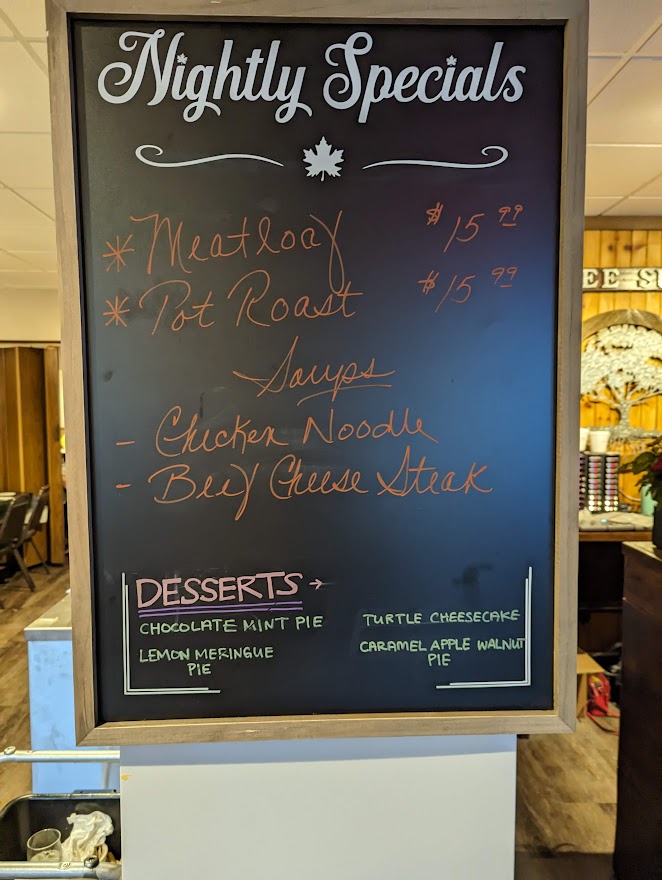 Nightly Specials
* Meatloaf $15.99
* Pot Roast $15.99
Soups
- Chicken Noodle
- Beef Cheese Steak
DESSERTS →
CHOCOLATE MINT PIE
LEMON MERINGUE
PIE
TURTLE CHEESECAKE
CARAMEL APPLE WALNUT
PIE